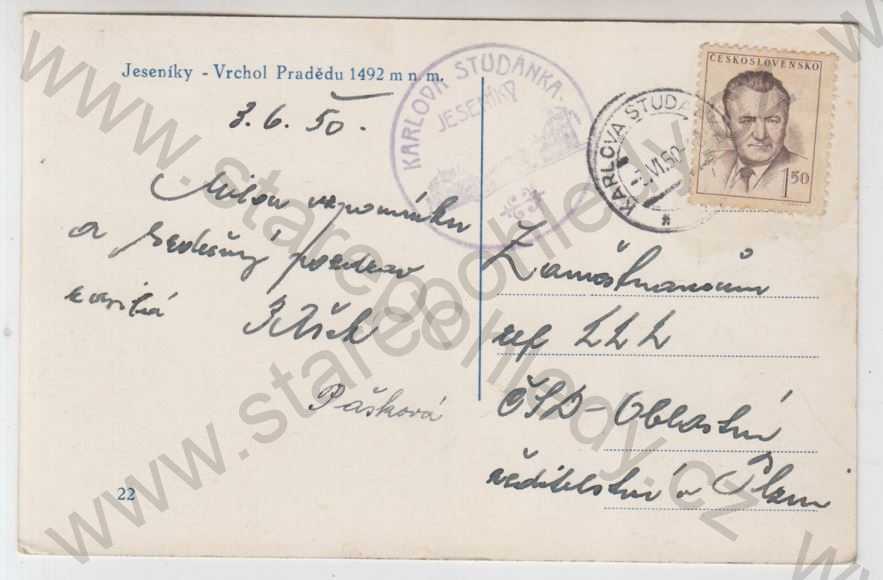 Jeseníky - Vrchol Pradědu 1492 m n. m.
3. 6. 50.
Milou vzpomínku
a srdečný pozdrav
zasílá
Pášková
22
KARLOVA STUDÁNKA
JESENÍKY
KARLOVA STUDÁ
VI.50
ČESKOSLOVENSKO
1 50
Zaměstnancům
ref
ČSD - Oblastní
ředitelství v Plzni
www.starepohledy.cz